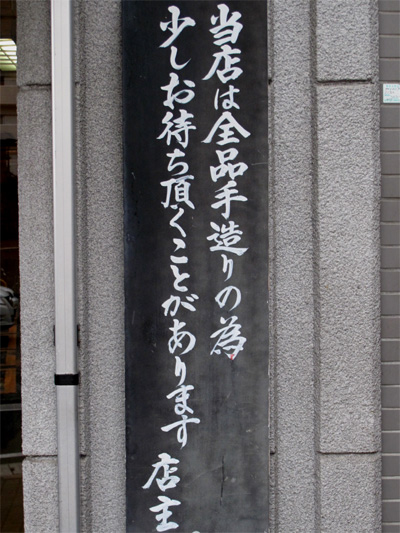 当店は全品手造りの為
少しお待ち頂くことがあります
店主